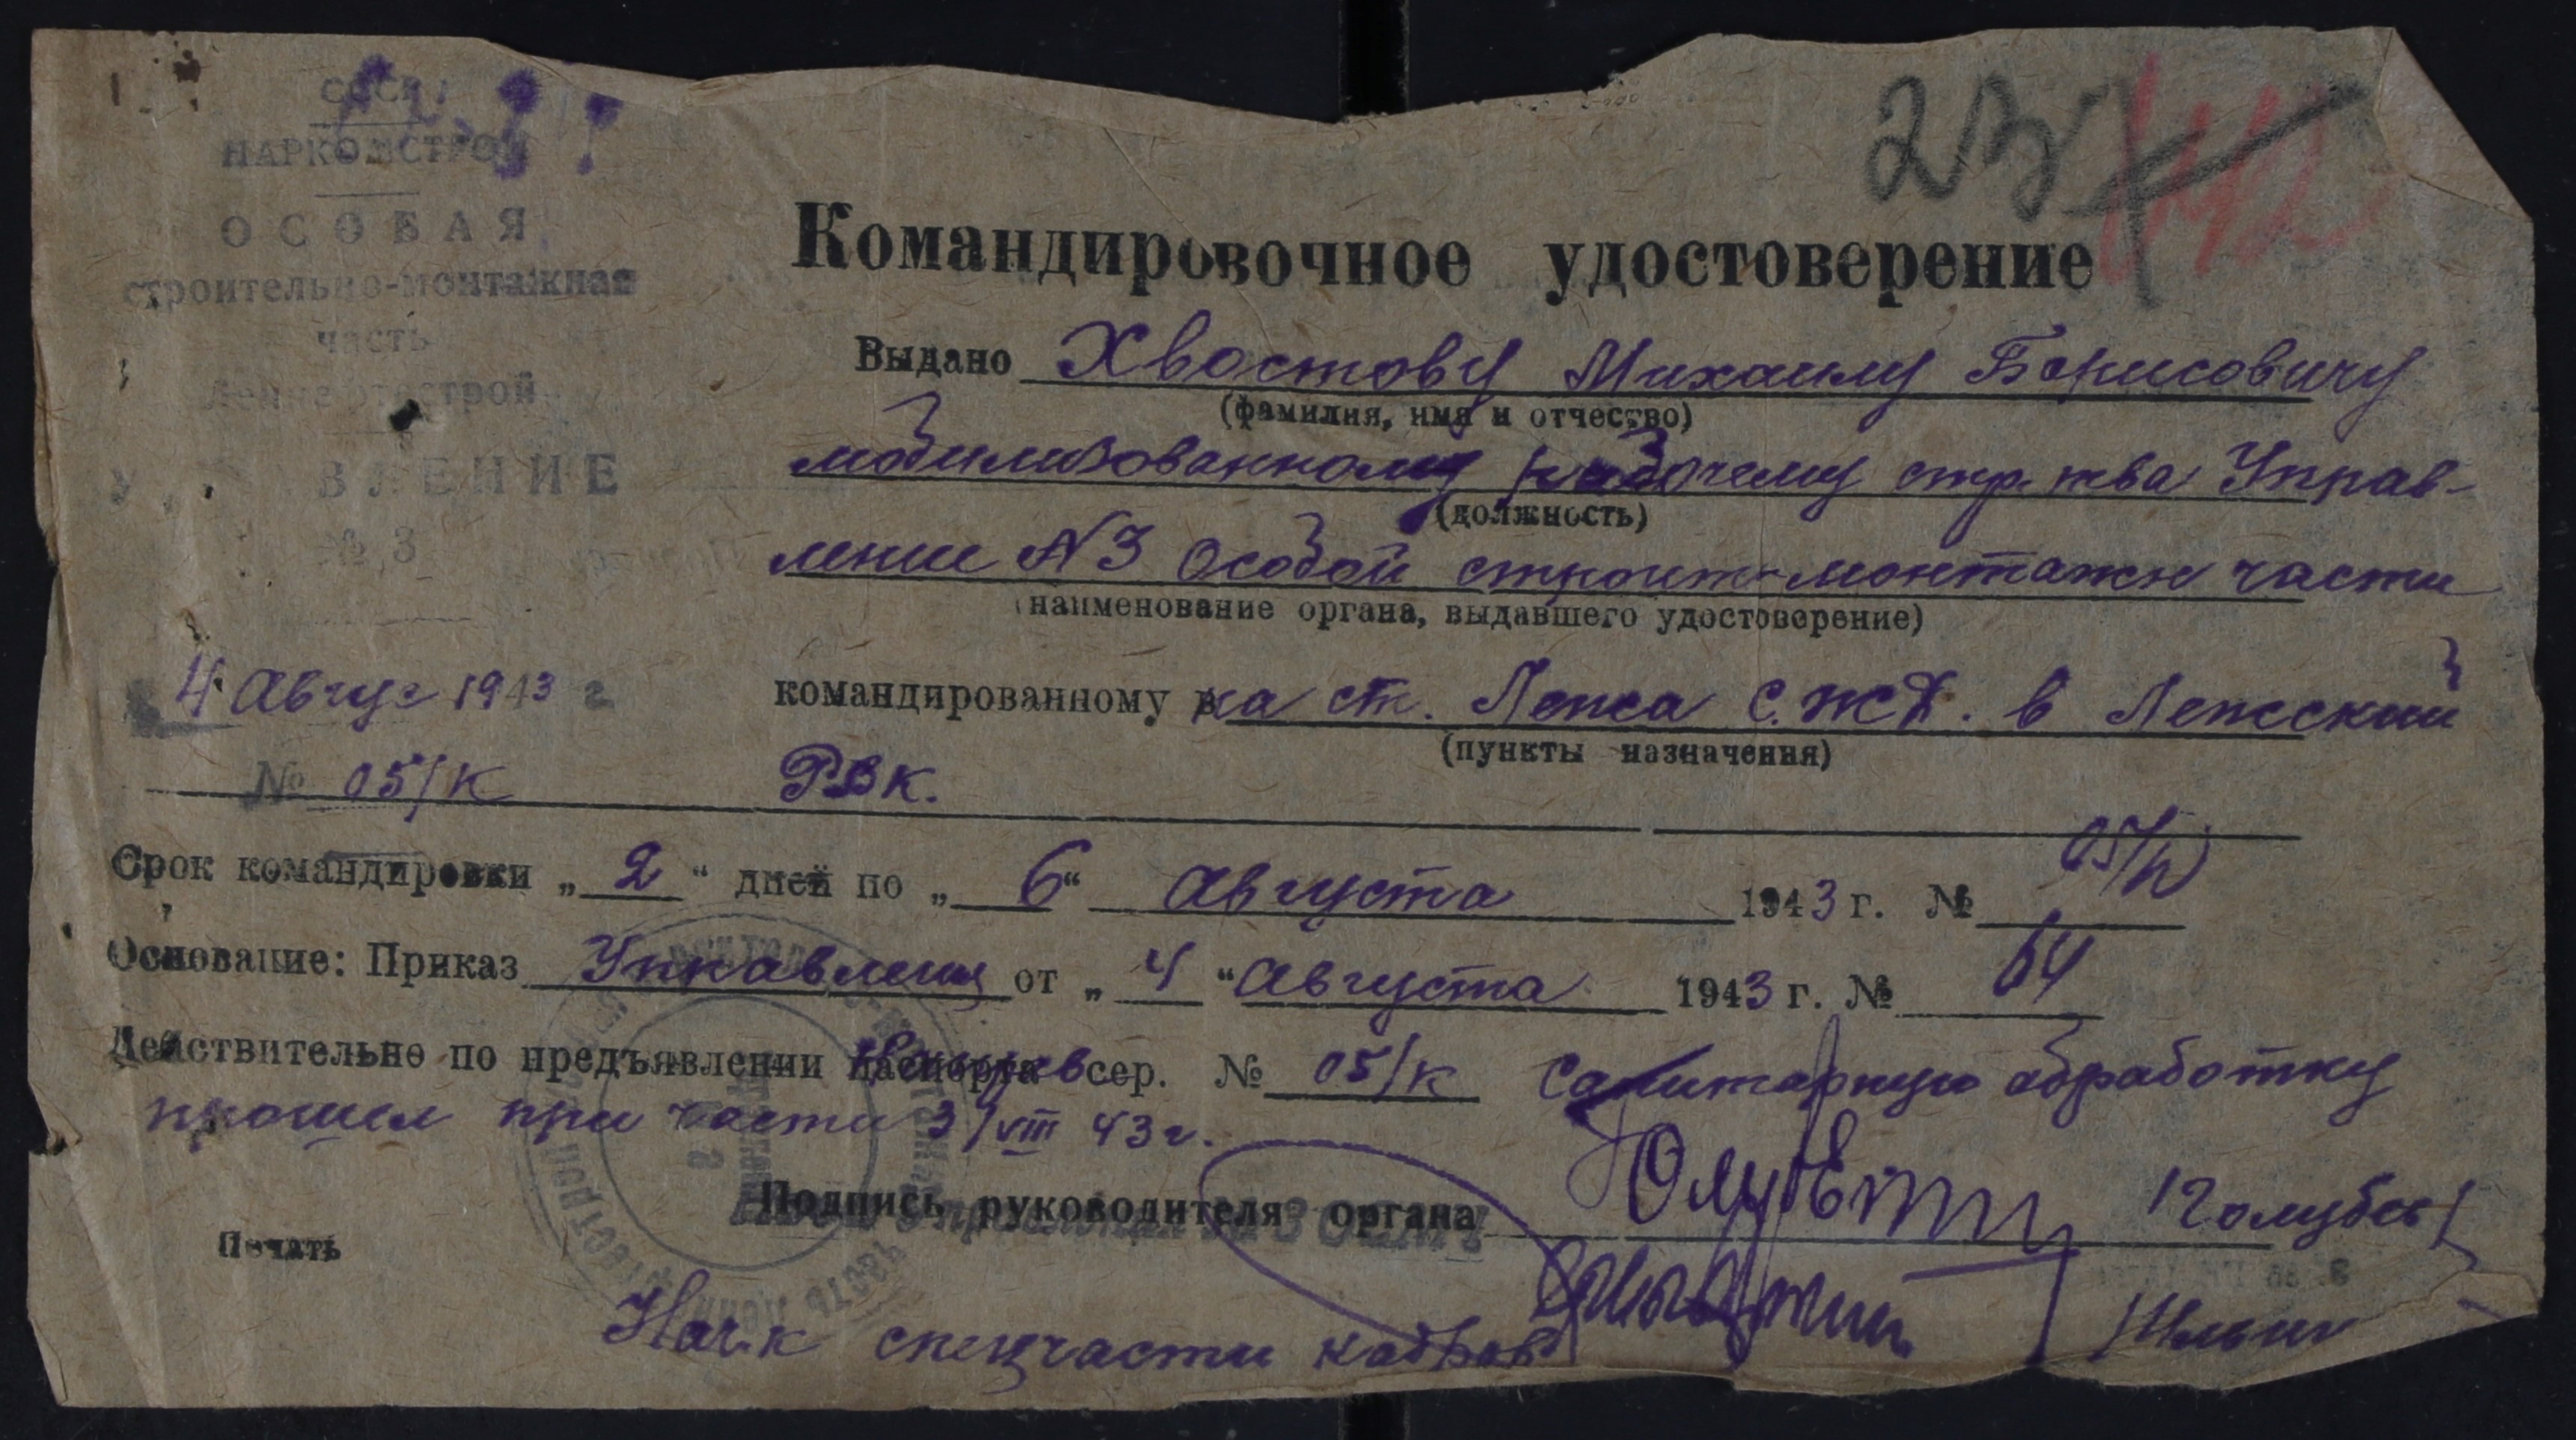 СССР
НАРКОМСТРОЙ
ОСОБАЯ
строительно-монтажная
часть
№ 3
4 Август 1943 г
№ 05/к
23
Командировочное удостоверение
Выдано Хвостову Михаилу Борисовичу
(фамилия, имя и отчество)
мобилизованному рабочему стр. тва Управ-
(должность)
ление N3 Особой строит-монтажн части
(наименование органа, выдавшего удостоверение)
командированному на ст. Лежа С.ЖД. в Лежский
(пункты назначения)
РВК.
Срок командировки „2“ дней по „6“ Августа 1943 г. №
Основание: Приказ Управления от „4“ Августа 1943 г. № 64
Действительно по предъявлении паспорта сер. № 05/к Санитарную обработку
прошел при части 3/VIII 43г.
Подпись руководителя органа
Печать
Нач.к спецчасти кадров